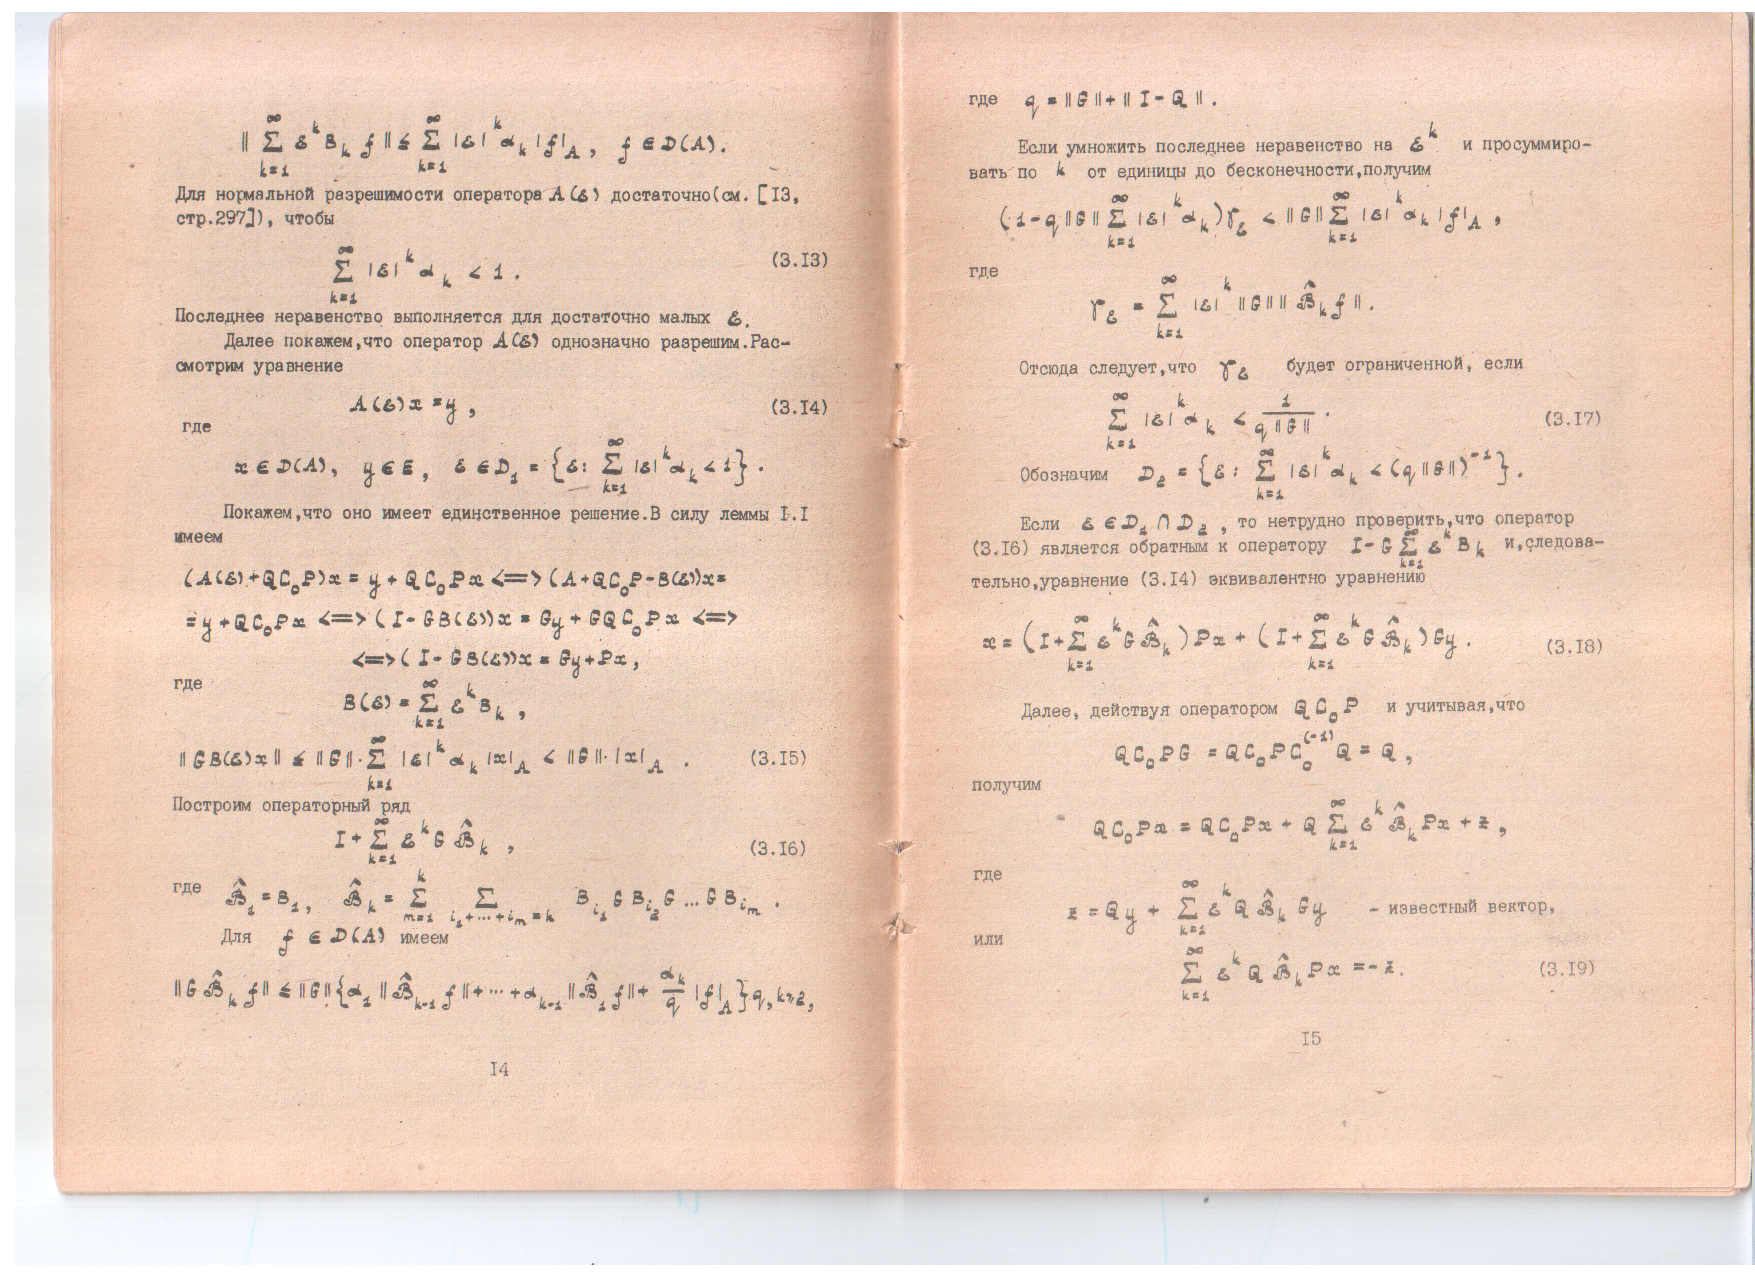 ‖ ∑_{k=1}^∞ ε^k B_k f ‖ ≤ ∑_{k=1}^∞ |ε|^k α_k |f|_A , f ∈ D(A).
Для нормальной разрешимости оператора A(ε) достаточно(см. [I3,
стр.297]), чтобы
∑_{k=1}^∞ |ε|^k α_k < 1 . (3.I3)
Последнее неравенство выполняется для достаточно малых ε.
Далее покажем,что оператор A(ε) однозначно разрешим.Рас-
смотрим уравнение
A(ε)x = y , (3.I4)
где
x ∈ D(A), y ∈ E , ε ∈ D_1 = {ε: ∑_{k=1}^∞ |ε|^k α_k < 1} .
Покажем,что оно имеет единственное решение.В силу леммы I.I
имеем
(A(ε)+QC_0P)x = y + QC_0Px <=> (A+QC_0P-B(ε))x=
= y + QC_0Px <=> (I-GB(ε))x = Gy + GQC_0Px <=>
<=> (I-GB(ε))x = Gy+Px,
где
B(ε) = ∑_{k=1}^∞ ε^k B_k ,
‖GB(ε)x‖ ≤ ‖G‖·∑_{k=1}^∞ |ε|^k α_k |x|_A < ‖G‖·|x|_A . (3.I5)
Построим операторный ряд
I + ∑_{k=1}^∞ ε^k G B̂_k , (3.I6)
где B̂_1 = B_1, B̂_k = ∑_{m=1}^k ∑_{i_1+...+i_m=k} B_{i_1} G B_{i_2} G ... G B_{i_m} .
Для f ∈ D(A) имеем
‖G B̂_k f‖ ≤ ‖G‖{α_1 ‖B̂_{k-1} f‖+...+α_{k-1}‖B̂_1 f‖+ α_k/q |f|_A}q, k≥2,
I4
где q = ‖G‖+‖I-Q‖ .
Если умножить последнее неравенство на ε^k и просуммиро-
вать по k от единицы до бесконечности,получим
(1-q‖G‖∑_{k=1}^∞ |ε|^k α_k)γ_ε < ‖G‖∑_{k=1}^∞ |ε|^k α_k |f|_A ,
где
γ_ε = ∑_{k=1}^∞ |ε|^k ‖G‖‖B̂_k f‖.
Отсюда следует,что γ_ε будет ограниченной, если
∑_{k=1}^∞ |ε|^k α_k < 1/(q‖G‖) . (3.I7)
Обозначим D_2 = {ε: ∑_{k=1}^∞ |ε|^k α_k < (q‖G‖)^{-1}}.
Если ε ∈ D_1 ∩ D_2 , то нетрудно проверить,что оператор
(3.I6) является обратным к оператору I-G∑_{k=1}^∞ ε^k B_k и,следова-
тельно,уравнение (3.I4) эквивалентно уравнению
x = (I+∑_{k=1}^∞ ε^k G B̂_k)Px + (I+∑_{k=1}^∞ ε^k G B̂_k)Gy . (3.I8)
Далее, действуя оператором QC_0P и учитывая,что
QC_0PG = QC_0PC_0^{(-1)}Q = Q ,
получим
QC_0Px = QC_0Px + Q∑_{k=1}^∞ ε^k B̂_k Px + z ,
где
z = Qy + ∑_{k=1}^∞ ε^k Q B̂_k Gy - известный вектор,
или
∑_{k=1}^∞ ε^k Q B̂_k Px = -z. (3.I9)
I5